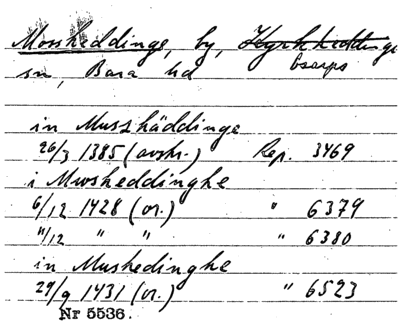 Mossheddinge, by, Kyrkheddinge
Esarps
sn, Bara hd
in Musshäddinge
26/3 1385 (avskr.) Rep. 3469
i Mwsheddinghe
6/12 1428 (or.) " 6379
11/12 " " " 6380
in Mushedinghe
29/9 1431 (or.) " 6523
Nr 5536.